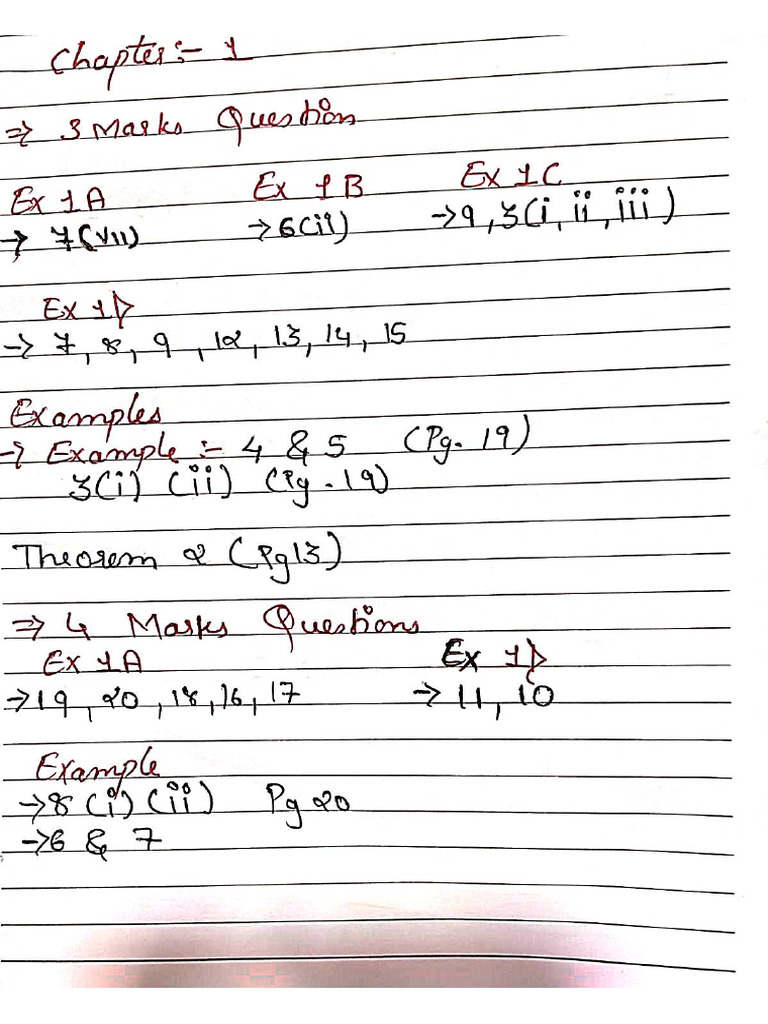 Chapter :- 1
⇒ 3 Marks Question
Ex 1A Ex 1B Ex 1C
→ 7(VII) →6(ii) →9, 3(i, ii, iii)
Ex 1D
→ 7, 8, 9, 12, 13, 14, 15
Examples
→ Example :- 4 & 5 (Pg. 19)
3(i) (ii) (Pg. 19)
Theorem 2 (Pg13)
⇒ 4 Marks Questions
Ex 1A Ex 1D
→19, 20, 18, 16, 17 → 11, 10
Example
→8 (i) (ii) Pg 20
→6 & 7